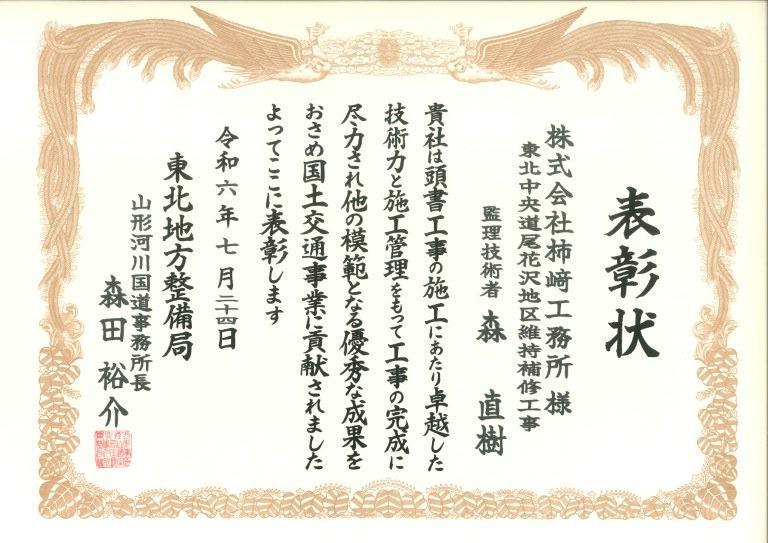 表彰状
株式会社柿﨑工務所様
東北中央道尾花沢地区維持補修工事
監理技術者 森 直樹
貴社は頭書工事の施工にあたり卓越した
技術力と施工管理をもって工事の完成に
尽力され他の模範となる優秀な成果を
おさめ国土交通事業に貢献されました
よってここに表彰します
令和六年七月二十四日
東北地方整備局
山形河川国道事務所長
森田裕介